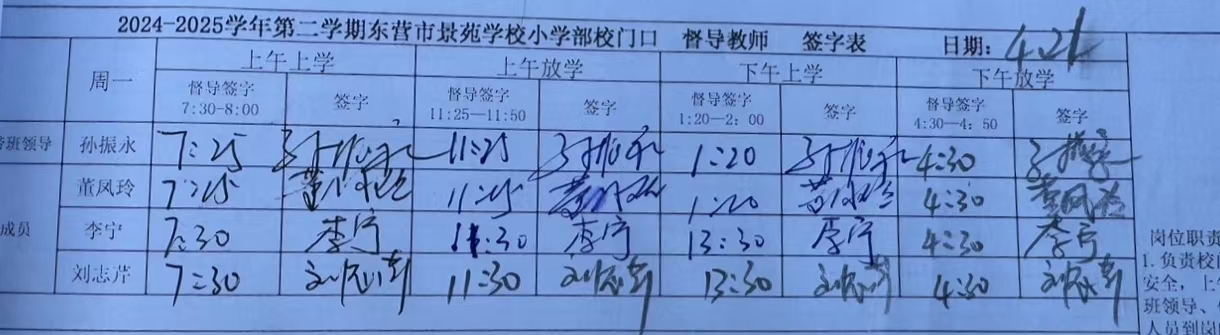 2024-2025学年第二学期东营市景苑学校小学部校门口 督导教师 签字表 日期: 4.21
周一 上午上学 上午放学 下午上学 下午放学
督导签字 签字 督导签字 签字 督导签字 签字 督导签字 签字
7:30-8:00 11:25—11:50 1:20—2: 00 4:30—4: 50
带班领导 孙振永 7:25 孙振永 11:25 孙振永 1:20 孙振永 4:30 孙振永
董凤玲 7:25 董凤玲 11:25 董凤玲 1:20 董凤玲 4:30 董凤玲
成员 李宁 7:30 李宁 11:30 李宁 13:30 李宁 4:30 李宁
刘志芹 7:30 刘志芹 11:30 刘志芹 13:30 刘志芹 4:30 刘志芹
岗位职责
1. 负责校门
安全, 上
班领导、
人员到岗